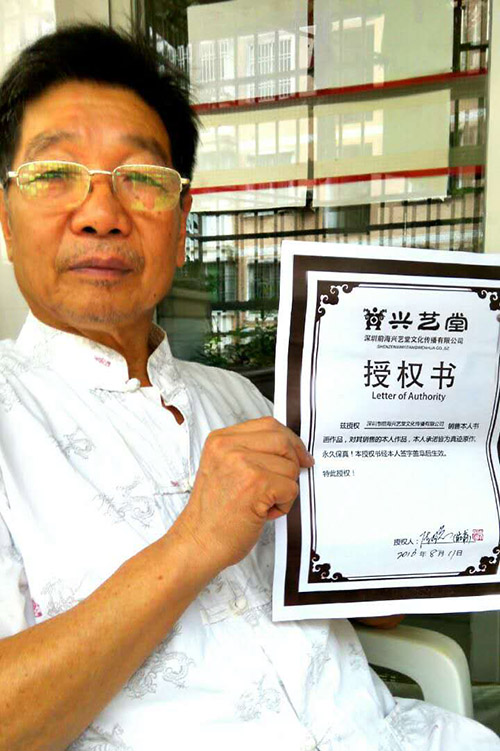 兴艺堂
深圳前海兴艺堂文化传播有限公司
授权书
Letter of Authority
兹授权 深圳市前海兴艺堂文化传播有限公司 销售本人书
画作品，对其销售的本人作品，本人承诺皆为真迹原作，
永久保真！本授权书经本人签字盖章后生效。
特此授权！
授权人：
2016年8月11日